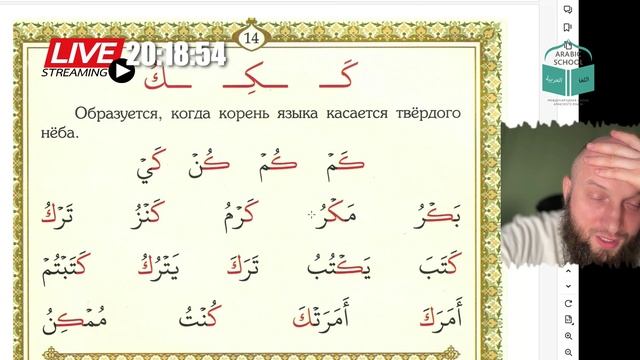 14
LIVE 20:18:54
STREAMING
ARABIC
SCHOOL
كَـ ـكِـ ـكُ
Образуется, когда корень языка касается твёрдого
нёба.
كَمْ كُمْ كُنْ كَيْ
بَكْرُ مَكْرُ كَرْمُ كَنْزُ تَرْكُ
كَتَبَ يَكْتُبُ تَرَكَ يَتْرُكُ كَتَبْتُمْ
أَمَرَكَ أَمَرَتْكَ كُنْتُ مُمْكِنُ